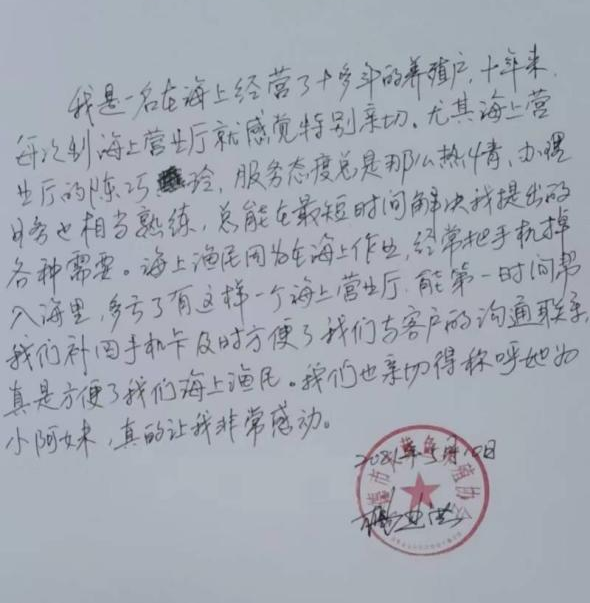 我是一名在海上经营了十多年的养殖户,十年来,
每次到海上营业厅就感觉特别亲切。尤其海上营
业厅的陈巧玲,服务态度总是那么热情、办理
业务也相当熟练,总能在最短时间解决我提出的
各种需要。海上渔民因为在海上作业,经常把手机掉
入海里,多亏了有这样一个海上营业厅,能第一时间帮
我们补回手机卡及时方便了我们与客户的沟通联系,
真是方便了我们海上渔民。我们也亲切得称呼她为
小阿妹,真的让我非常感动。
2021年5月10日